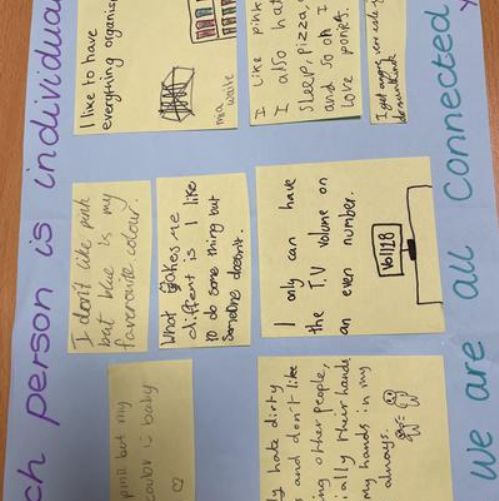 ch person is individual
I like to have
everything organise
mia waite
I like pink
I also hat
sleep, pizza,
and so on I
love ponies.
I get angry very easily
I don't like pink
but blue is my
faverouite colour.
What makes me
different is I like
to do some thing but
Someone doesn't.
I only can have
the T.V volume on
an even number.
Vol:28
pink but my
color is baby
y hate dirty
and don't like
ing other people,
ially their hands
my hands in my
always.
we are all connected